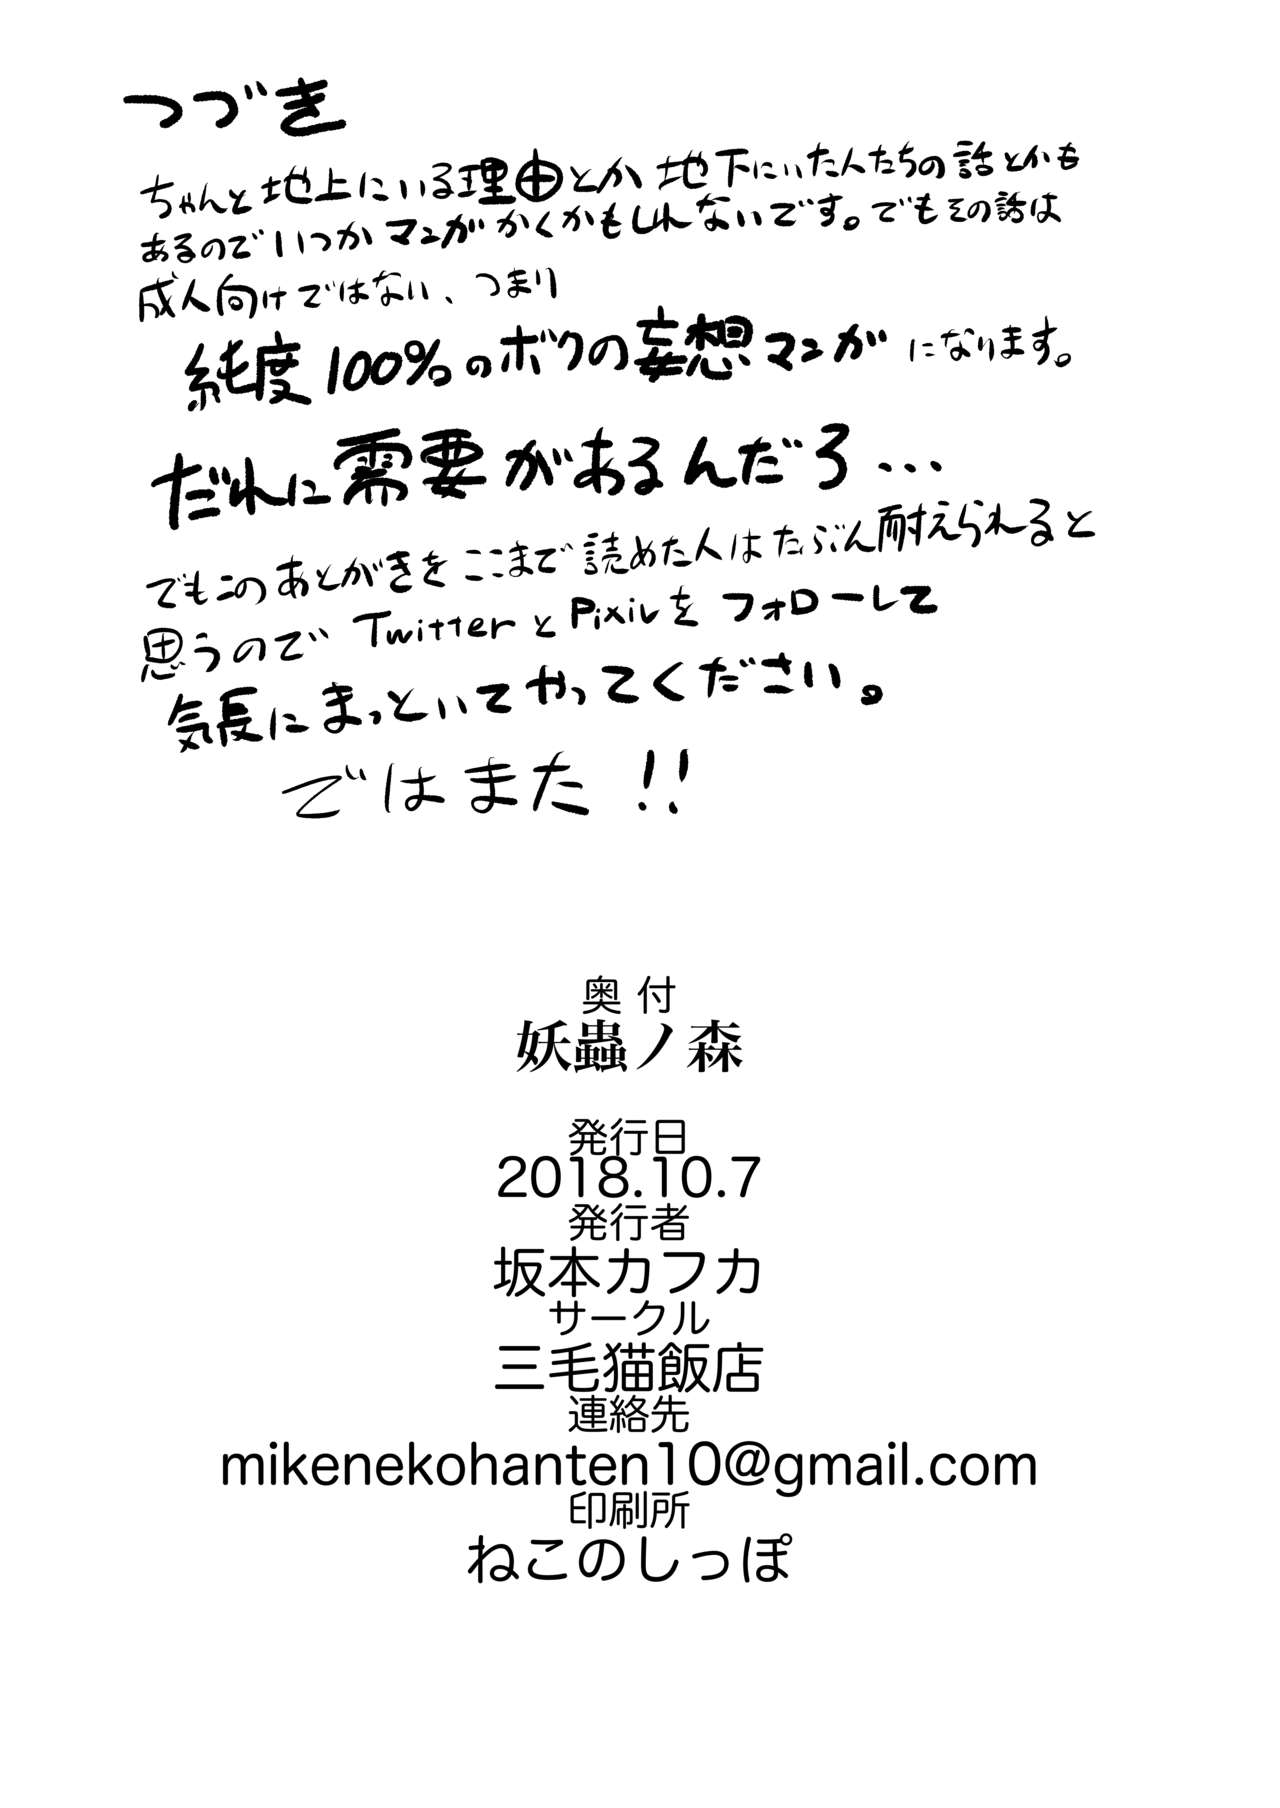 つづき
ちゃんと地上にいる理由とか地下にいた人たちの話とかも
あるのでいつかマンガかくかもしれないです。でもその話は
成人向けではない、つまり
純度100%のボクの妄想マンガになります。
だれに需要があるんだろ...
でもこのあとがきをここまで読めた人はたぶん耐えられると
思うのでTwitterとPixivをフォローして
気長にまっといてやってください。
ではまた!!
奥付
妖蟲ノ森
発行日
2018.10.7
発行者
坂本カフカ
サークル
三毛猫飯店
連絡先
mikenekohanten10@gmail.com
印刷所
ねこのしっぽ